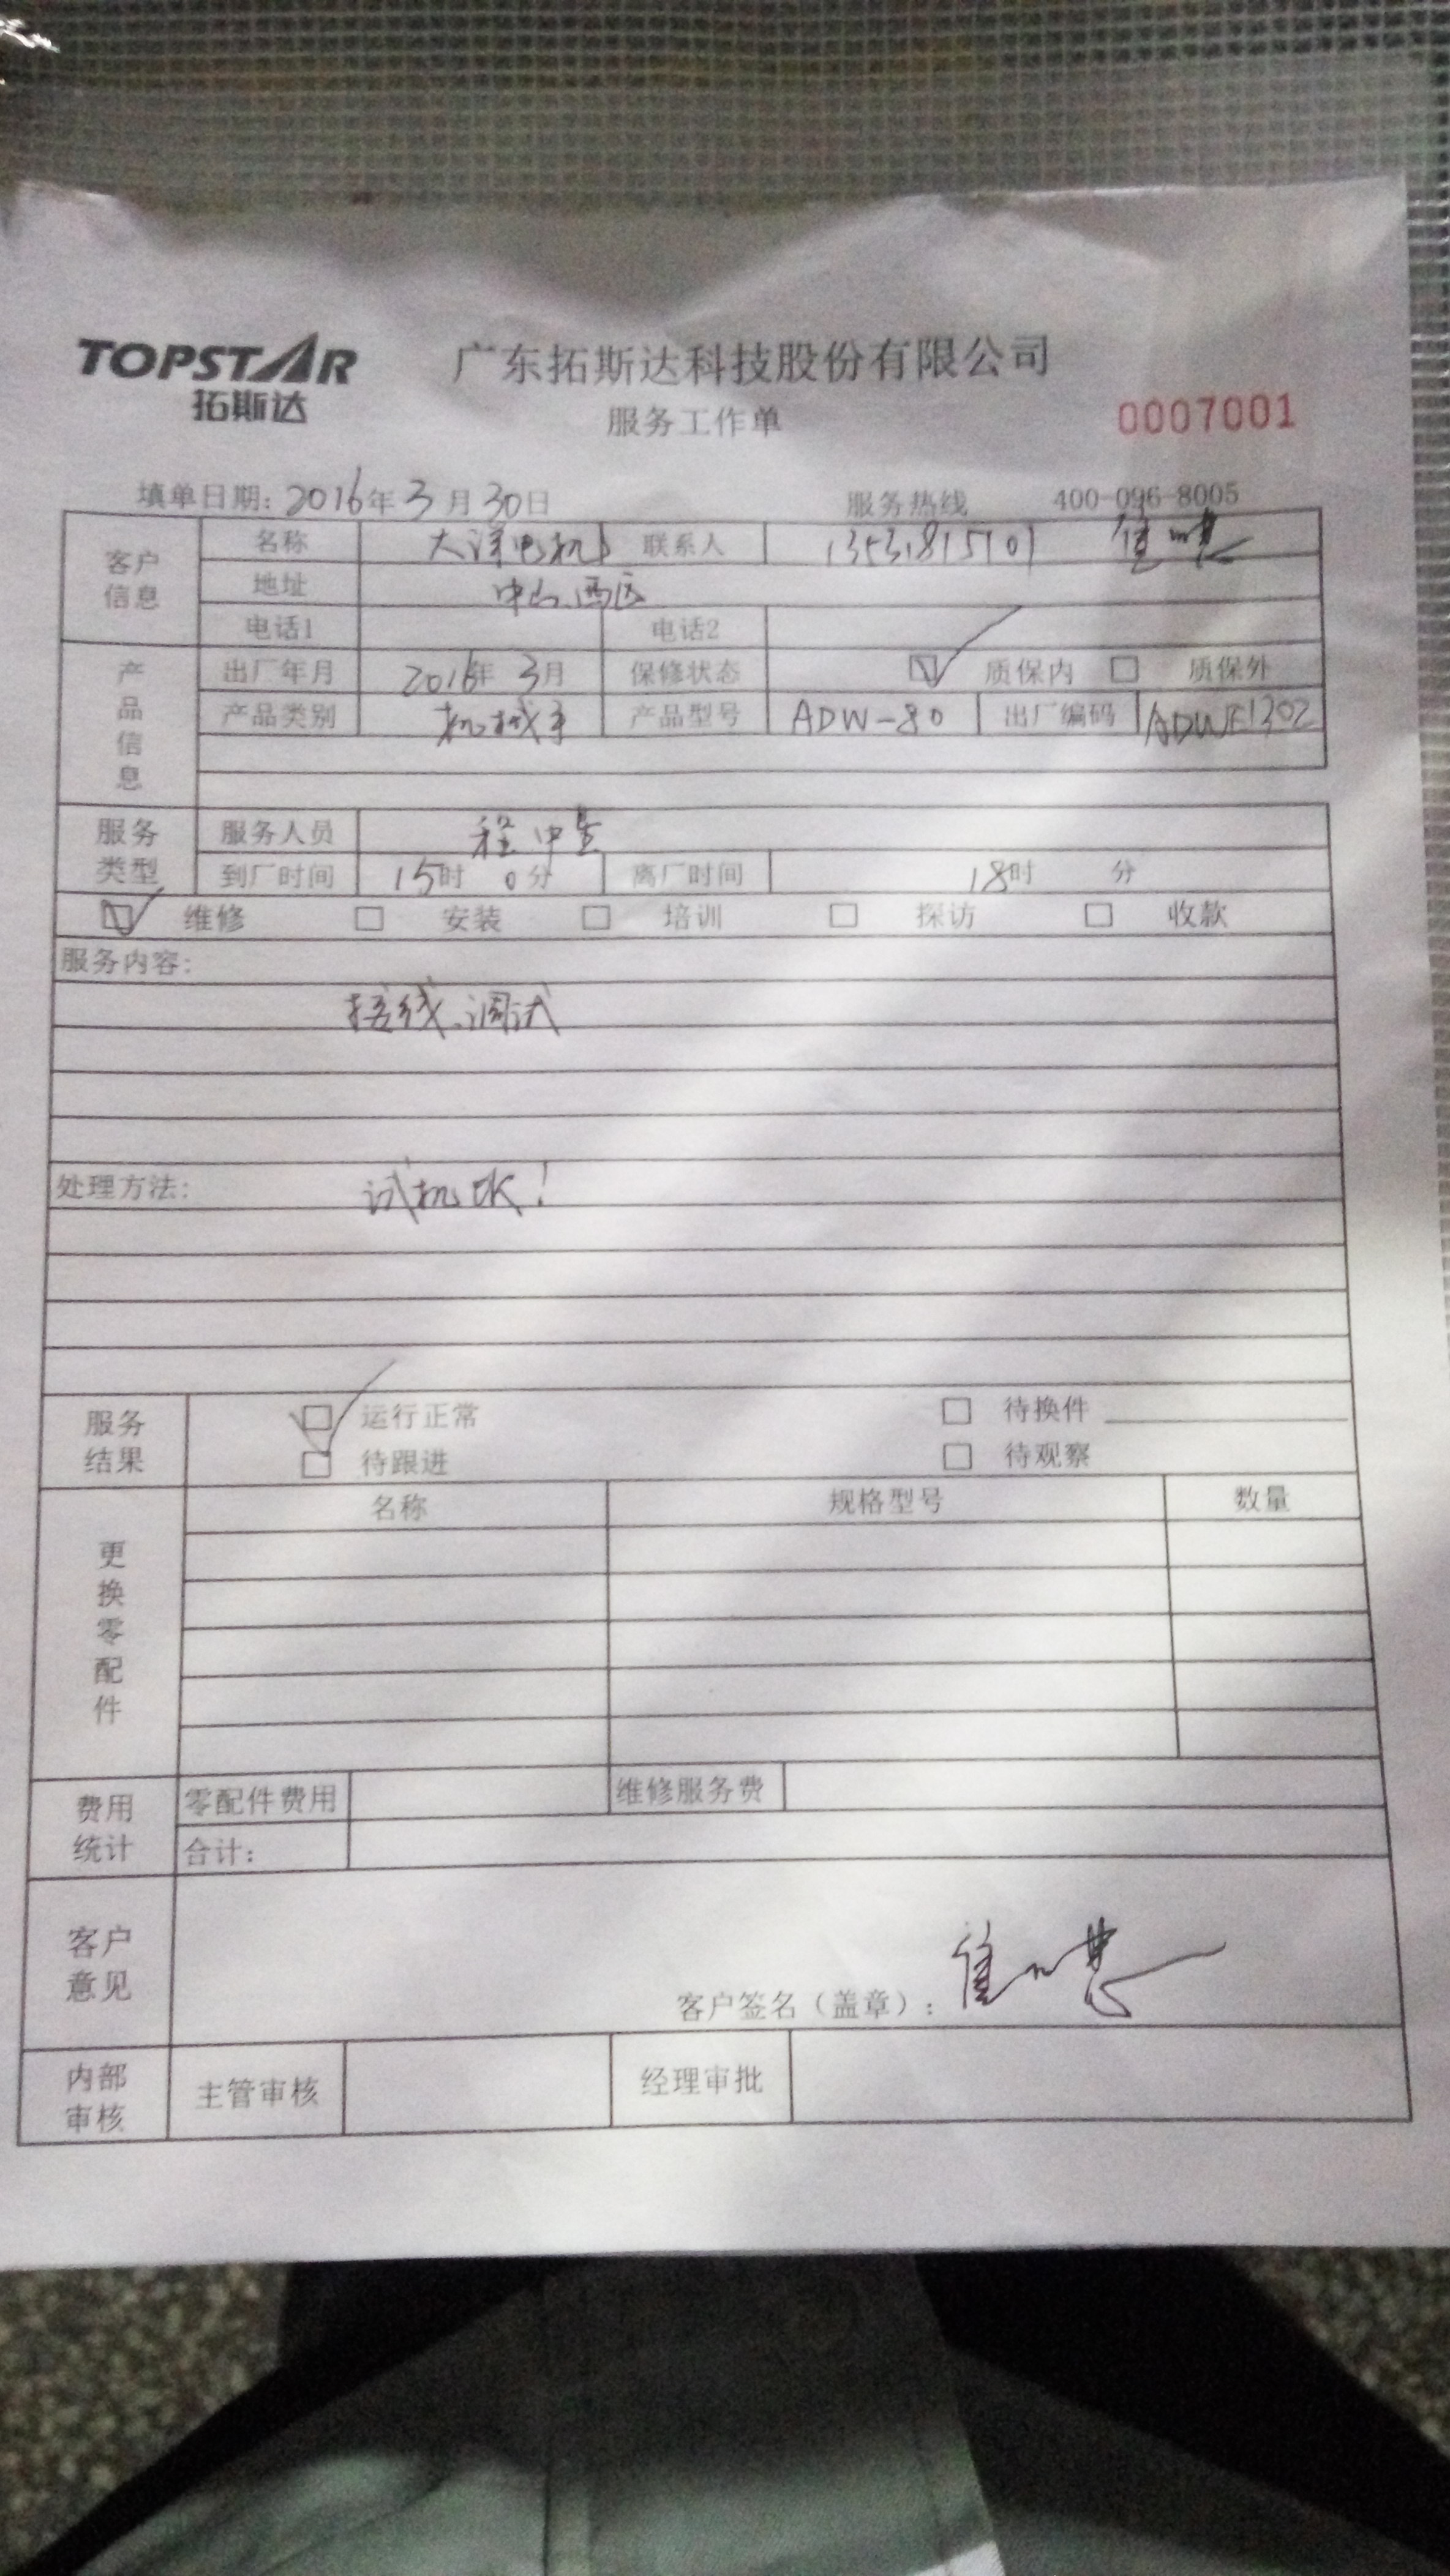 TOPSTAR 广东拓斯达科技股份有限公司
拓斯达 服务工作单 0007001
填单日期: 2016年 3月 30日 服务热线 400-096-8005
客户信息 名称 大洋电机 联系人
地址 中山西区
电话1 电话2
产品信息 出厂年月 2016年 3月 保修状态 质保内 质保外
产品类别 机械手 产品型号 ADW-80 出厂编码
服务类型 服务人员
到厂时间 15时 0分 离厂时间 18时 分
维修 安装 培训 探访 收款
服务内容:
接线、调试
处理方法: 试机OK!
服务结果 运行正常 待换件
待跟进 待观察
更换零配件 名称 规格型号 数量
费用统计 零配件费用 维修服务费
合计:
客户意见 客户签名（盖章）:
内部审核 主管审核 经理审批